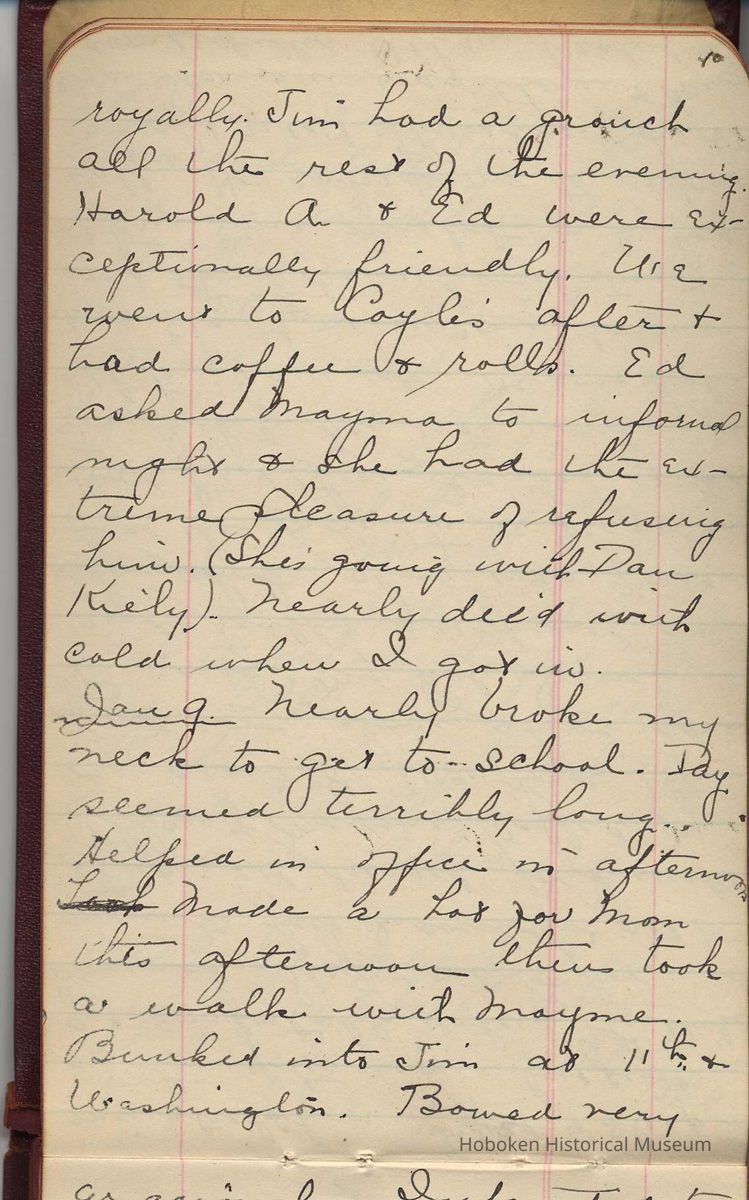 10
royally. Jim had a grouch
all the rest of the evening.
Harold A. & Ed were ex-
ceptionally friendly. We
went to Coyle's after &
had coffee & rolls. Ed
asked Mayme to informal
night & she had the ex-
treme pleasure of refusing
him. (She's going with Dan
Kiely). Nearly died with
cold when I got in.
Jan 9. Nearly broke my
neck to get to school. Day
seemed terribly long.
Helped in office in afternoon
Made a hat for Mom
this afternoon then took
a walk with Mayme.
Bunked into Jim at 11th &
Washington. Bowed very
Hoboken Historical Museum